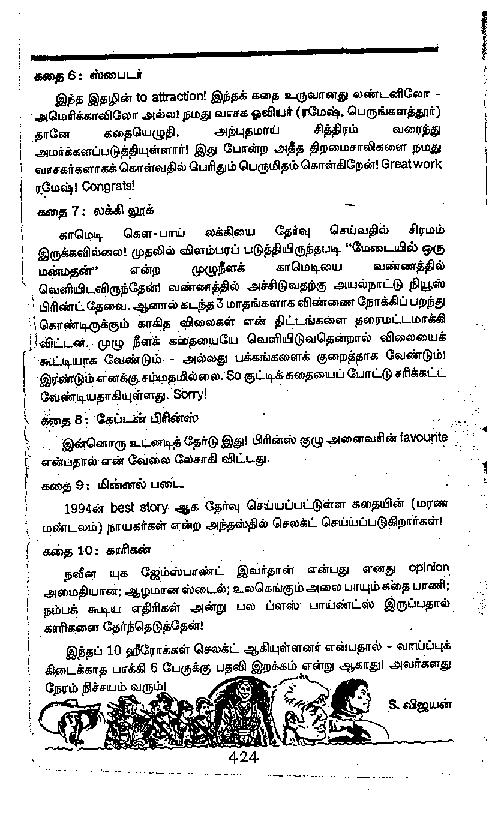 கதை 6 : ஸ்பைடர்
இந்த இதழின் to attraction! இந்தக் கதை உருவானது லண்டனிலோ -
அமெரிக்காவிலோ அல்ல! நமது வாசக ஓவியர் (ரமேஷ், பெருங்களத்தூர்)
தானே கதையெழுதி, அற்புதமாய் சித்திரம் வரைந்து
அமர்க்களப்படுத்தியுள்ளார்! இது போன்ற அதீத திறமைசாலிகளை நமது
வாசகர்களாகக் கொள்வதில் பெரிதும் பெருமிதம் கொள்கிறேன்! Great work
ரமேஷ்! Congrats!
கதை 7 : லக்கி லூக்
காமெடி கௌ-பாய் லக்கியை தேர்வு செய்வதில் சிரமம்
இருக்கவில்லை! முதலில் விளம்பரப் படுத்தியிருந்தபடி "மேடையில் ஒரு
மன்மதன்" என்ற முழுநீளக் காமெடியை வண்ணத்தில்
வெளியிடவிருந்தேன்! வண்ணத்தில் அச்சிடுவதற்கு அயல்நாட்டு நியூஸ்
பிரிண்ட் தேவை. ஆனால் கடந்த 3 மாதங்களாக விண்ணை நோக்கிப் பறந்து
கொண்டிருக்கும் காகித விலைகள் என் திட்டங்களை தரைமட்டமாக்கி
விட்டன. முழு நீளக் கதையையே வெளியிடுவதென்றால் விலையைக்
கூட்டியாக வேண்டும் - அல்லது பக்கங்களைக் குறைத்தாக வேண்டும்!
இரண்டும் எனக்கு சம்மதமில்லை. So குட்டிக் கதையைப் போட்டு சரிக்கட்ட
வேண்டியதாகியுள்ளது. Sorry!
கதை 8 : கேப்டன் பிரின்ஸ்
இன்னொரு உடனடித் தேர்டு இது! பிரின்ஸ் குழு அனைவரின் favourite
என்பதால் என் வேலை லேசாகி விட்டது.
கதை 9 : மின்னல் படை
1994ன் best story ஆக தேர்வு செய்யப்பட்டுள்ள கதையின் (மரண
மண்டலம்) நாயகர்கள் என்ற அந்தஸ்தில் செலக்ட் செய்யப்படுகிறார்கள்!
கதை 10 : காரிகன்
நவீன யுக ஜேம்ஸ்பாண்ட் இவர்தான் என்பது எனது opinion
அமைதியான; ஆழமான ஸ்டைல்; உலகெங்கும் அலை பாயும் கதை பாணி;
நம்பக் கூடிய எதிரிகள் அன்று பல ப்ளஸ் பாய்ண்ட்ஸ் இருப்பதால்
காரிகனை தேர்ந்தெடுத்தேன்!
இந்தப் 10 ஹீரோக்கள் செலக்ட் ஆகியுள்ளனர் என்பதால் - வாய்ப்புக்
கிடைக்காத பாக்கி 6 பேருக்கு பதவி இறக்கம் என்று ஆகாது! அவர்களது
நேரம் நிச்சயம் வரும்!
S. விஜயன்
424